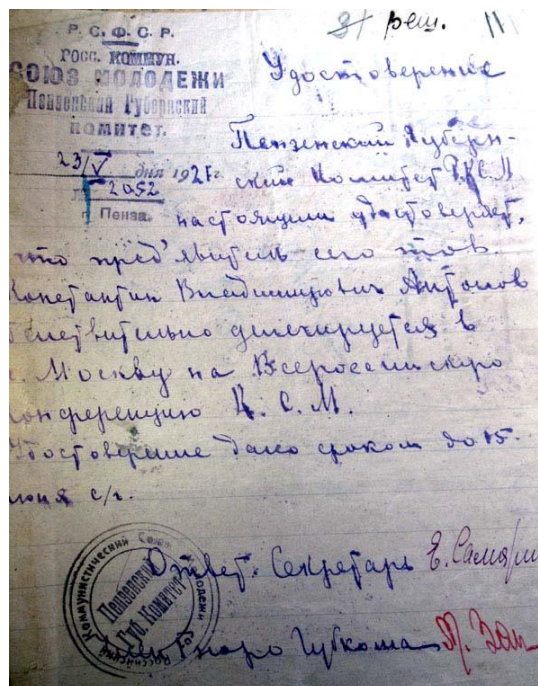 реш.
Р. С. Ф. С. Р.
Росс. КОММУН.
СОЮЗ МОЛОДЕЖИ
Пензенский Губернский
КОМИТЕТ.
23/V дня 1921 г.
2052
г. Пенза.
Удостоверение
Пензенский Губерн-
ский Комитет Р.К.С.М
настоящим удостоверяет,
что пред'явитель сего тов.
Константин Владимирович Антонов
действительно делегируется в
г. Москву на Всероссийскую
конференцию К. С. М.
Удостоверение дано сроком до 15
июня с/г.
Ответ. Секретарь Е.
Член Бюро Губкома
Российский Коммунистический Союз Молодежи
Пензенский
Губ. Комитет